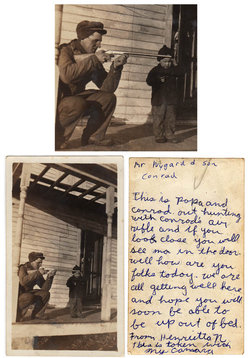 Mr Nygard & son
Conrad
This is Papa and
conrad out hunting
with conrad's air
rifle and if you
look close you will
see ma in the door
well how are you
folks today. we are
all getting well here
and hope you will
soon be able to
be up out of bed.
From Henrietta N.
This is taken with
my camera